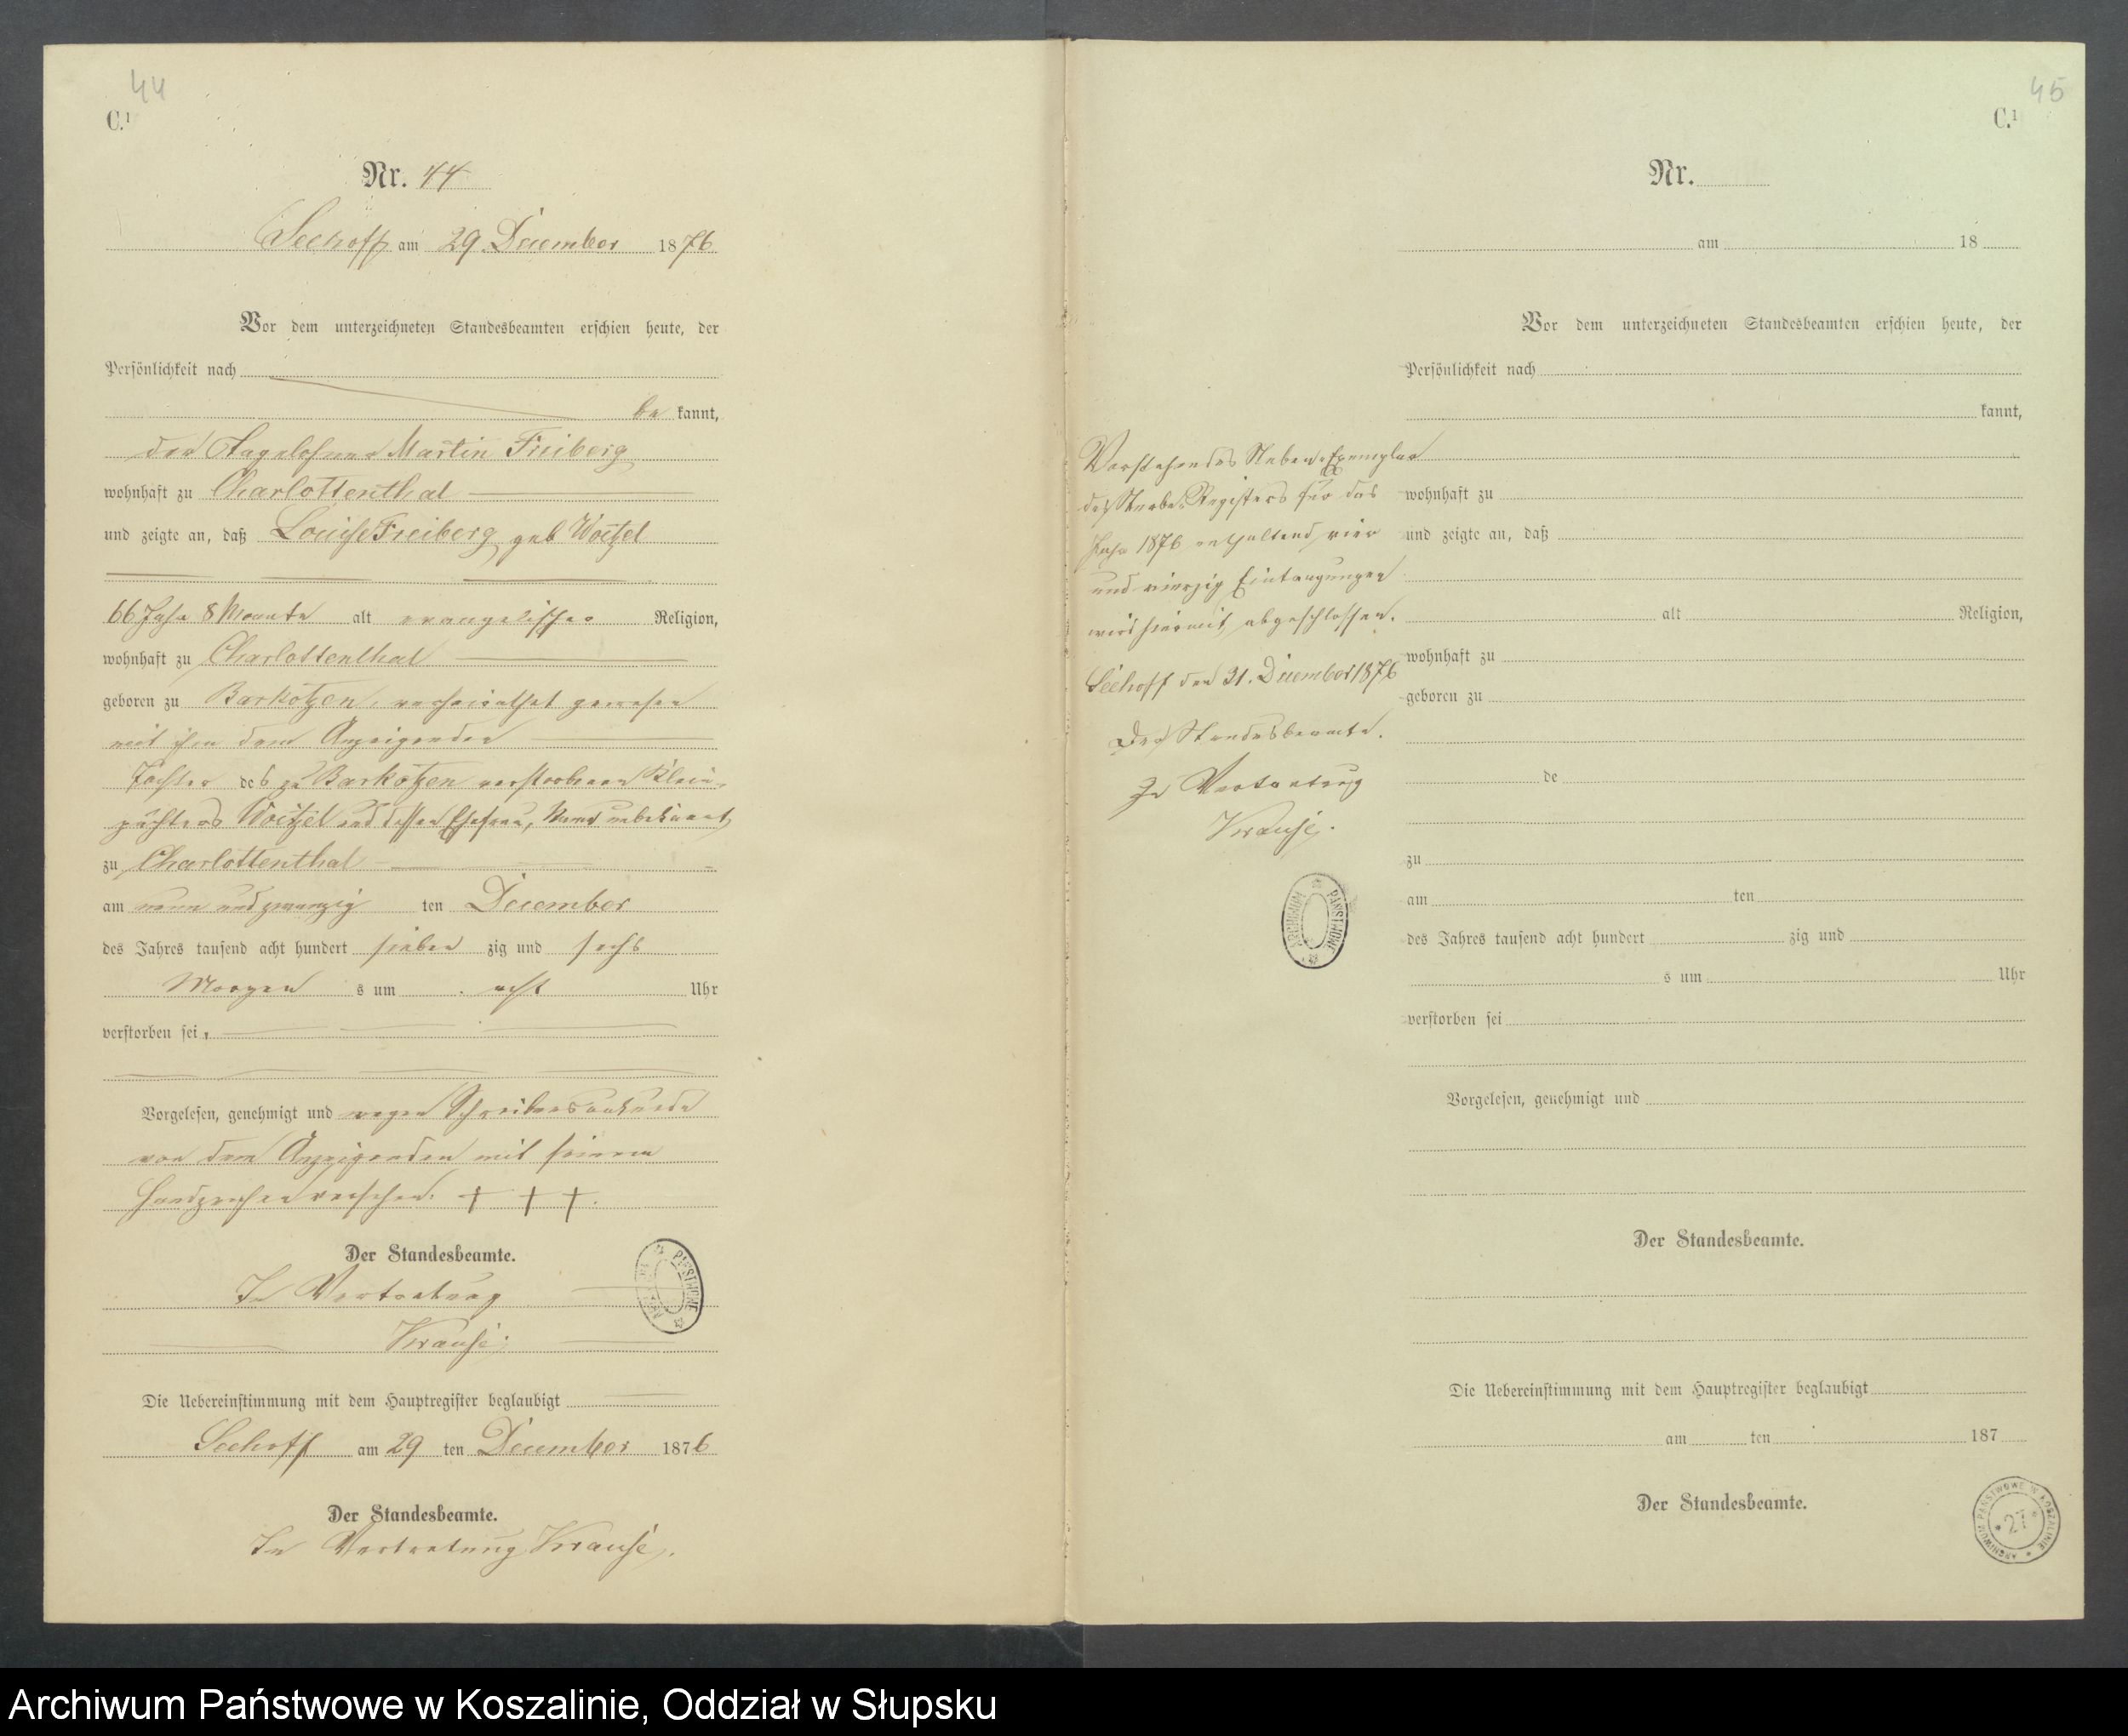 44
C.1
Nr. 44
Seehoff am 29 December 1876
Vor dem unterzeichneten Standesbeamten erschien heute, der
Persönlichkeit nach
be kannt,
der Tagelöhner Martin Freiberg
wohnhaft zu Charlottenthal
und zeigte an, daß Louise Freiberg geb Woitzel
66 Jahr 8 Monate alt evangelischer Religion,
wohnhaft zu Charlottenthal
geboren zu Barkotzen, verheirathet gewesen
mit ihm dem Anzeigenden
Tochter des zu Barkotzen verstorbenen Klein-
pächters Woitzel und dessen Ehefrau, Name unbekannt
zu Charlottenthal
am neun und zwanzig ten December
des Jahres tausend acht hundert sieben zig und sechs
Morgen s um acht Uhr
verstorben sei,
Vorgelesen, genehmigt und wegen Schreibensunkunde
von dem Anzeigenden mit seinem
Handzeichen versehen. + + +.
Der Standesbeamte.
In Vertretung
Krause.
Die Uebereinstimmung mit dem Hauptregister beglaubigt
Seehoff am 29 ten December 1876
Der Standesbeamte.
In Vertretung Krause.
45
C.1
Nr.
am 18
Vor dem unterzeichneten Standesbeamten erschien heute, der
Persönlichkeit nach
kannt,
Vorstehendes Neben-Exemplar
des Sterbe-Registers für das
Jahr 1876 enthaltend vier
und vierzig Eintragungen
wird hiermit abgeschlossen.
Seehoff den 31. December 1876
Der Standesbeamte.
In Vertretung
Krause.
ARCHIWUM PAŃSTWOWE
wohnhaft zu
und zeigte an, daß
alt Religion,
wohnhaft zu
geboren zu
de
zu
am ten
des Jahres tausend acht hundert zig und
s um Uhr
verstorben sei
Vorgelesen, genehmigt und
Der Standesbeamte.
Die Uebereinstimmung mit dem Hauptregister beglaubigt
am ten 187
Der Standesbeamte.
ARCHIWUM PAŃSTWOWE W KOSZALINIE
27
Archiwum Państwowe w Koszalinie, Oddział w Słupsku